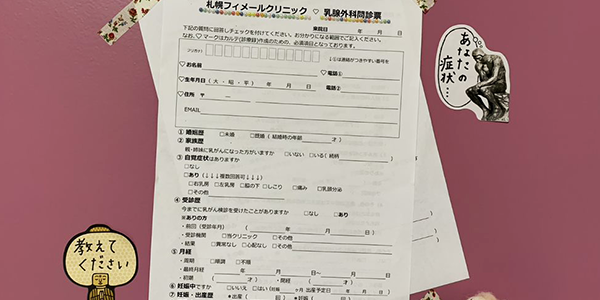 札幌フィメールクリニック ♡ 乳腺外科問診票
来院日 年 月 日
下記の質問に回答しチェックを付けてください。お分かりになる範囲でご記入ください。
なお、♡ マークはカルテ(診療録)作成のための、必須項目となっております。
フリガナ
♡お名前
♡電話①
♡生年月日 ( 大 ・ 昭 ・ 平 ) 年 月 日
電話②
♡住所 〒 ―
EMAIL
① 婚姻歴 □未婚 □既婚 ( 結婚時の年齢 才 )
② 家族歴
親・姉妹に乳がんになった方がいますか □いない □いる( 続柄 )
③ 自覚症状はありますか
□なし
□あり (↓↓↓複数回答可↓↓↓)
□右乳房 □左乳房 □脇の下 □しこり □痛み □乳頭分泌
□その他
④ 受診歴
今までに乳がん検診を受けたことがありますか □なし □あり
※ありの方
・前回 (受診年月) ( 年 月 日 )
・受診機関 □当クリニック □その他
・結果 □異常なし □心配なし □その他
⑤ 月経
・周期 □順調 □不順
・最終月経 年 月 日~ 月 日
・初潮 ( 才 ) ・閉経 ( 才 )
⑥ 妊娠中ですか □いいえ □はい (妊娠 か月 出産予定日 年 月 日)
⑦ 妊娠・出産歴 ★出産 ( 回 ) ★妊娠
あなたの
症状…
教えて
ください